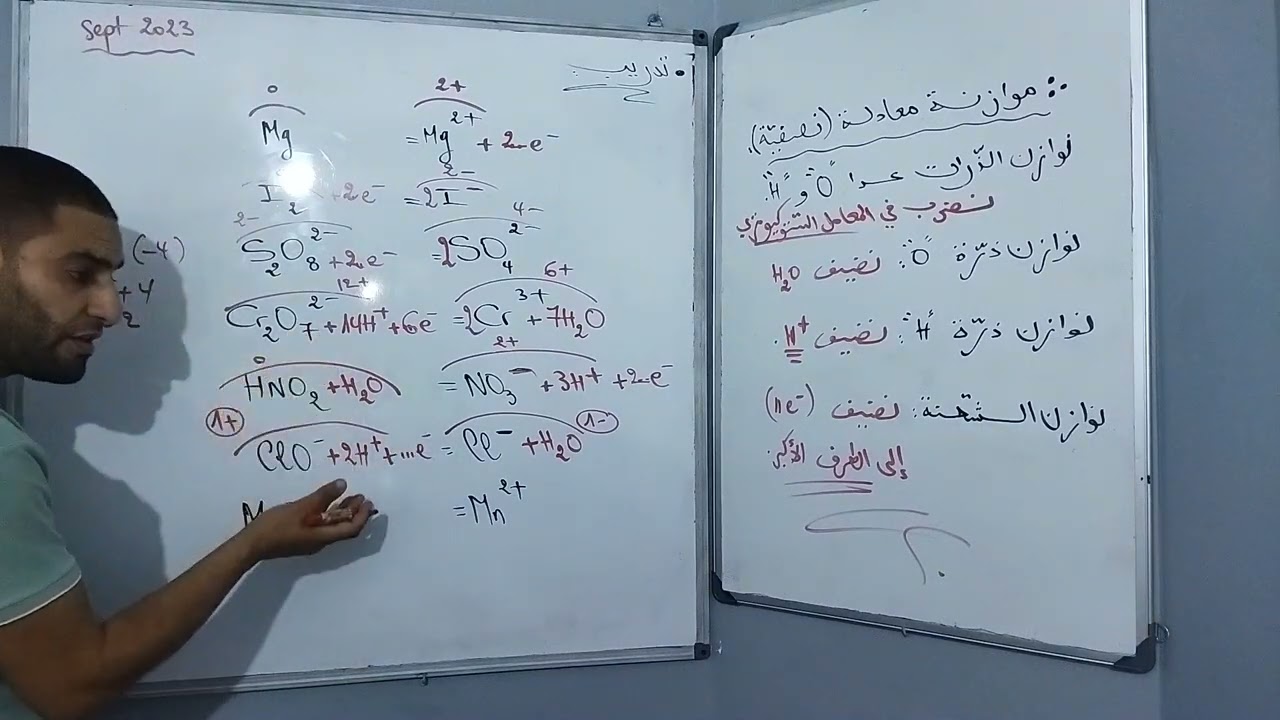 Sept 2023
• تدريب
0 2+
Mg = Mg²⁺ + 2e⁻
2-
I₂ + 2e⁻ = 2I⁻
2- 4-
S₂O₈²⁻ + 2e⁻ = 2SO₄²⁻
12+ 6+
Cr₂O₇²⁻ + 14H⁺ + 6e⁻ = 2Cr³⁺ + 7H₂O
0 2+
HNO₂ + H₂O = NO₃⁻ + 3H⁺ + 2e⁻
1+ 1-
ClO⁻ + 2H⁺ + ...e⁻ = Cl⁻ + H₂O
= Mn²⁺
(-4)
+ 4
2
موازنة معادلة (نصفية).
نوازن الذّرات عدا "O" و "H".
نضرب في المعامل الستوكيومتري
نوازن ذرّة "O": نضيف H₂O
نوازن ذرّة "H": نضيف H⁺.
نوازن الشّحنة: نضيف (ne⁻)
إلى الطرف الأكبر.
؟